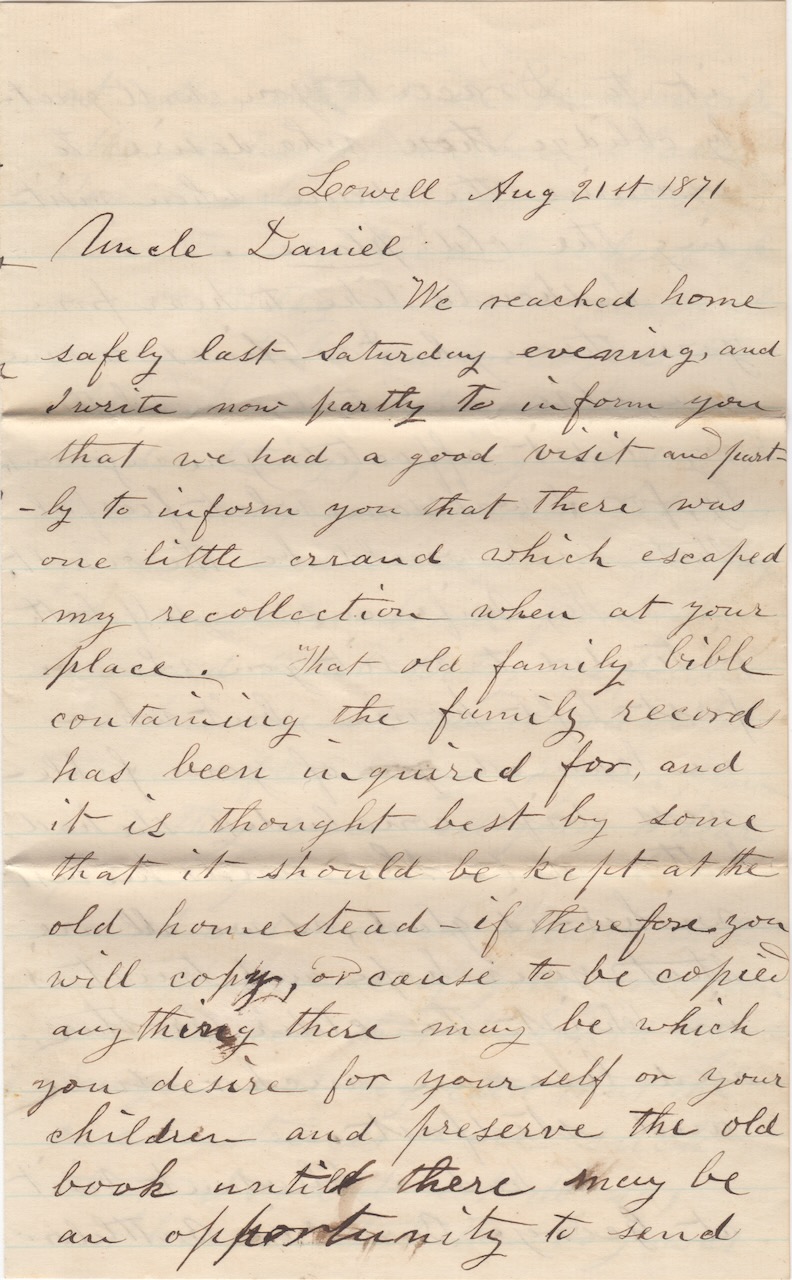 Lowell Aug 21st 1871
Uncle Daniel.
We reached home
safely last Saturday evening, and
I write now partly to inform you
that we had a good visit and part-
-ly to inform you that there was
one little errand which escaped
my recollection when at your
place. That old family bible
containing the family record
has been inquired for, and
it is thought best by some
that it should be kept at the
old homestead - if therefore you
will copy, or cause to be copied
anything there may be which
you desire for yourself or your
children and preserve the old
book untill there may be
an opportunity to send